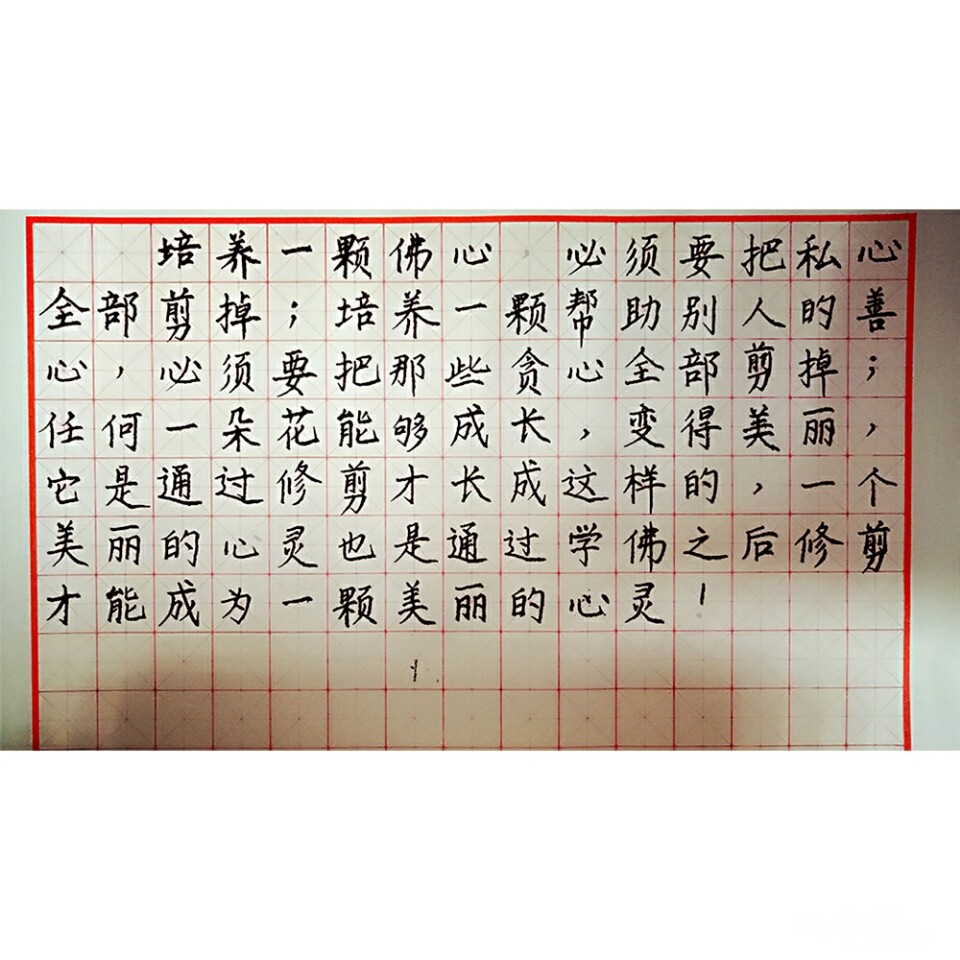 培养一颗佛心，必须要把私心
全部剪掉；培养一颗帮助别人的善
心，必须要把那些贪心全部剪掉；
任何一朵花能够成长，变得美丽，
它是通过修剪才长成这样的，一个
美丽的心灵也是通过学佛之后修剪
才能成为一颗美丽的心灵！